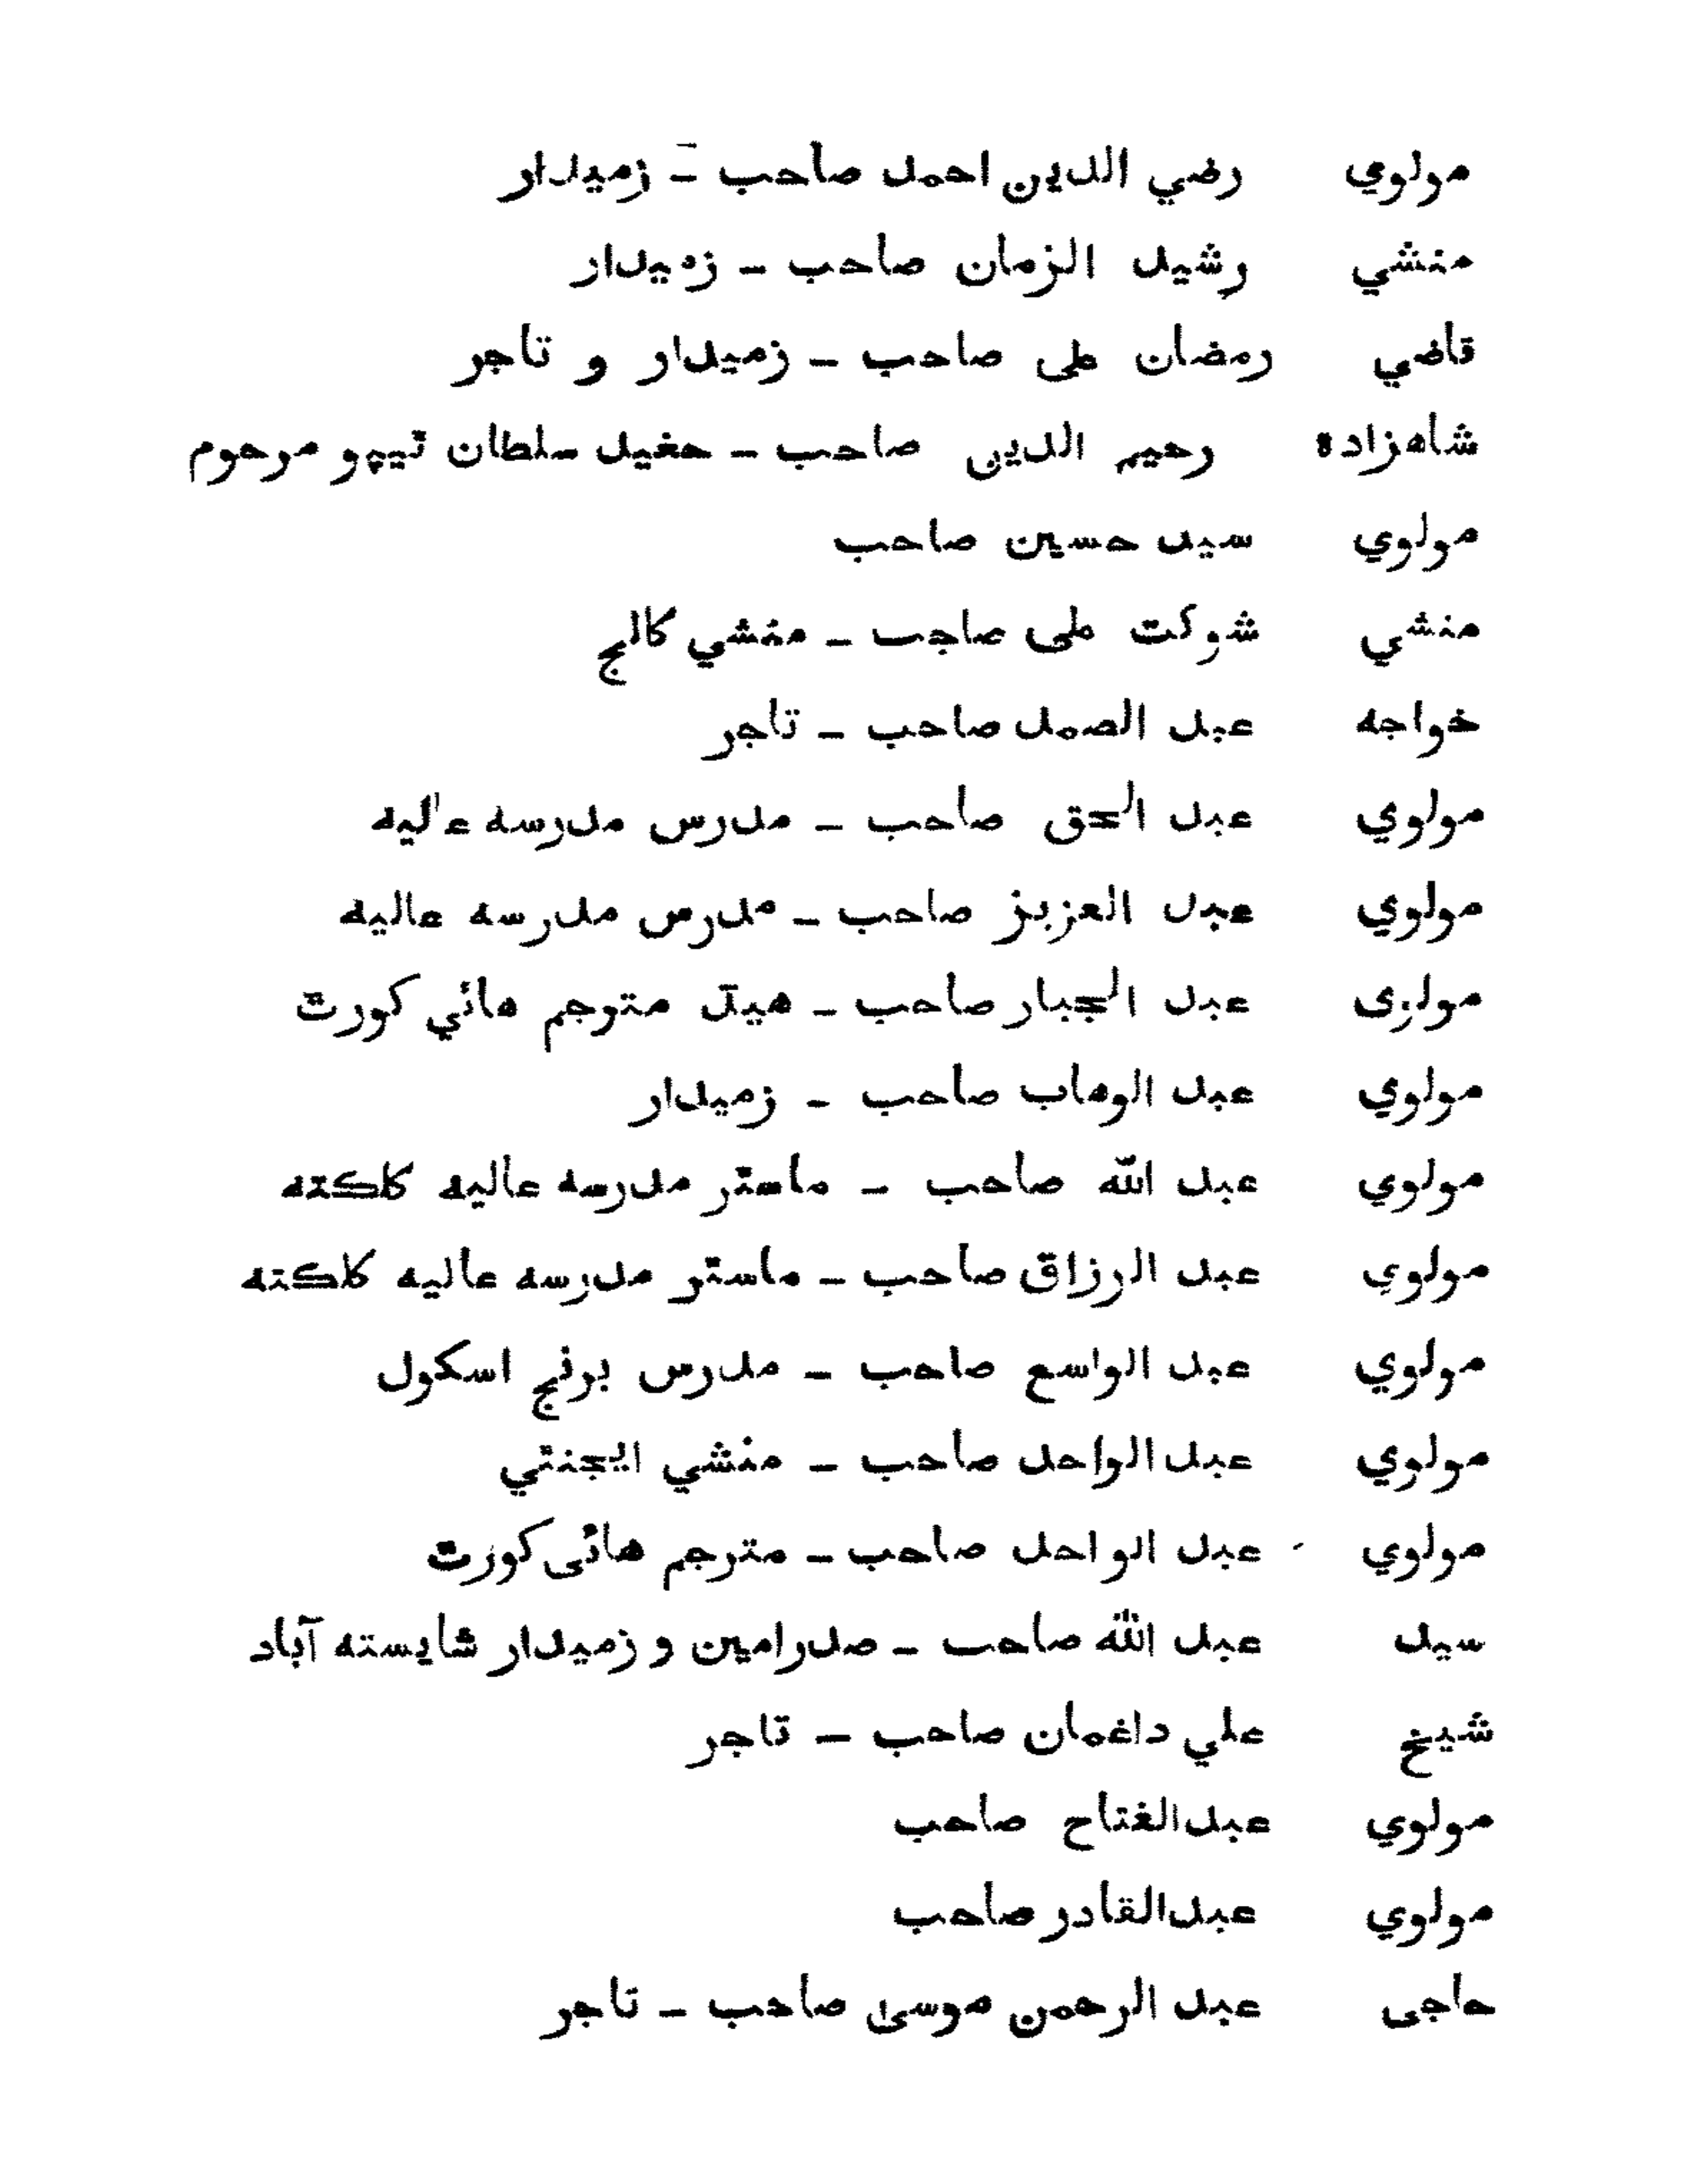 مولوي رضي الدين احمد صاحب ـ زميدار
منشي رشيد الزمان صاحب ـ زميدار
قاضي رمضان علی صاحب ـ زميدار و تاجر
شاهزادة رحيم الدين صاحب ـ حفيد سلطان ٿيپو مرحوم
مولوي سيد حسين صاحب
منشي شوکت علی صاحب ـ منشي کالج
خواجه عبد الصمد صاحب ـ تاجر
مولوي عبد الحق صاحب ـ مدرس مدرسه عاليه
مولوي عبد العزيز صاحب ـ مدرس مدرسه عاليه
مولوی عبد الجبار صاحب ـ هيڌ مترجم هائي کورٿ
مولوي عبد الوهاب صاحب ـ زميدار
مولوي عبد الله صاحب ـ ماسٿر مدرسه عاليه کلکته
مولوي عبد الرزاق صاحب ـ ماسٿر مدرسه عاليه کلکته
مولوي عبد الواسع صاحب ـ مدرس برنچ اسکول
مولوي عبد الواحد صاحب ـ منشي ايجنٿي
مولوي عبد الواحد صاحب ـ مترجم هائی کورٿ
سيد عبد الله صاحب ـ صدرامين و زميدار شايسته آباد
شيخ علي داغمان صاحب ـ تاجر
مولوي عبدالفتاح صاحب
مولوي عبدالقادر صاحب
حاجی عبد الرحمن موسیٰ صاحب ـ تاجر